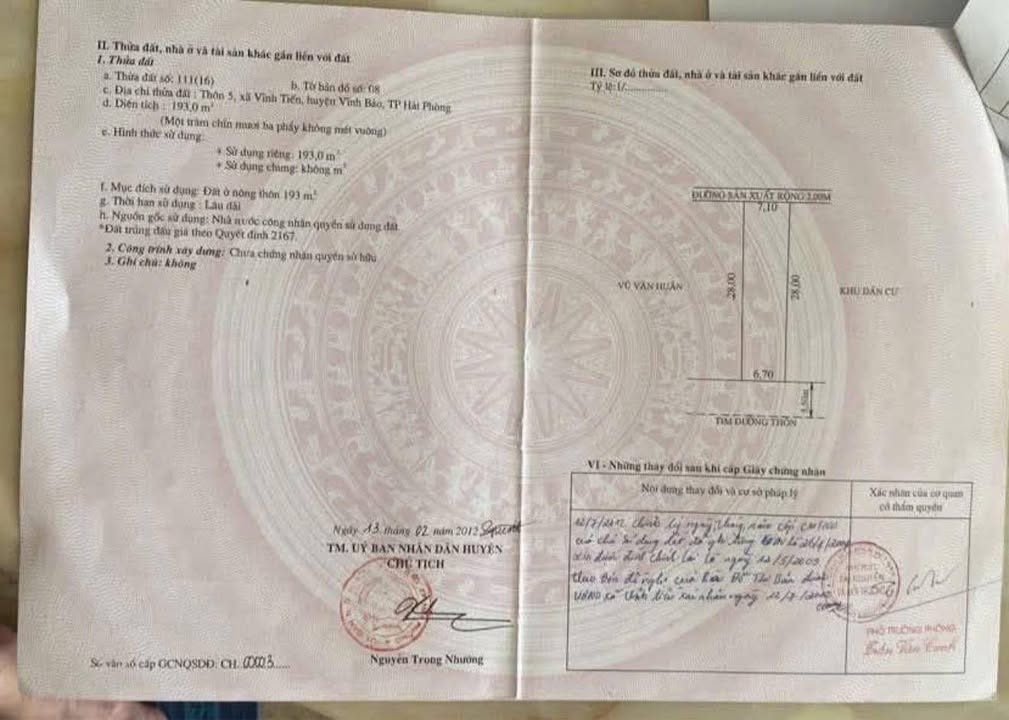 II. Thửa đất, nhà ở và tài sản khác gắn liền với đất
1. Thửa đất
a. Thửa đất số: 111(16) b. Tờ bản đồ số: 08
c. Địa chỉ thửa đất : Thôn 5, xã Vĩnh Tiến, huyện Vĩnh Bảo, TP Hải Phòng
d. Diện tích : 193,0 m²
(Một trăm chín mươi ba phẩy không mét vuông)
e. Hình thức sử dụng:
+ Sử dụng riêng: 193,0 m²
+ Sử dụng chung: không m²
f. Mục đích sử dụng: Đất ở nông thôn 193 m²
g. Thời hạn sử dụng : Lâu dài
h. Nguồn gốc sử dụng: Nhà nước công nhận quyền sử dụng đất
*Đất trúng đấu giá theo Quyết định 2167.
2. Công trình xây dựng: Chưa chứng nhận quyền sở hữu
3. Ghi chú: không
Ngày 13 tháng 02 năm 2012
TM. UỶ BAN NHÂN DÂN HUYỆN
CHỦ TỊCH
Nguyễn Trọng Nhưỡng
Số vào sổ cấp GCNQSDĐ: CH. 00003
III. Sơ đồ thửa đất, nhà ở và tài sản khác gắn liền với đất
Tỷ lệ:1/
ĐƯỜNG SẢN XUẤT RỘNG 2.00M
7,10
VŨ VĂN HUÂN
28,00
28,00
KHU DÂN CƯ
6,70
TIM ĐƯỜNG THÔN
VI - Những thay đổi sau khi cấp Giấy chứng nhận
Nội dung thay đổi và cơ sở pháp lý
Xác nhận của cơ quan
có thẩm quyền
12/7/2012 chỉnh lý ngày, tháng, năm cấp
ngày 12/5/2009
xác nhận ngày 12/7
PHÓ TRƯỞNG PHÒNG